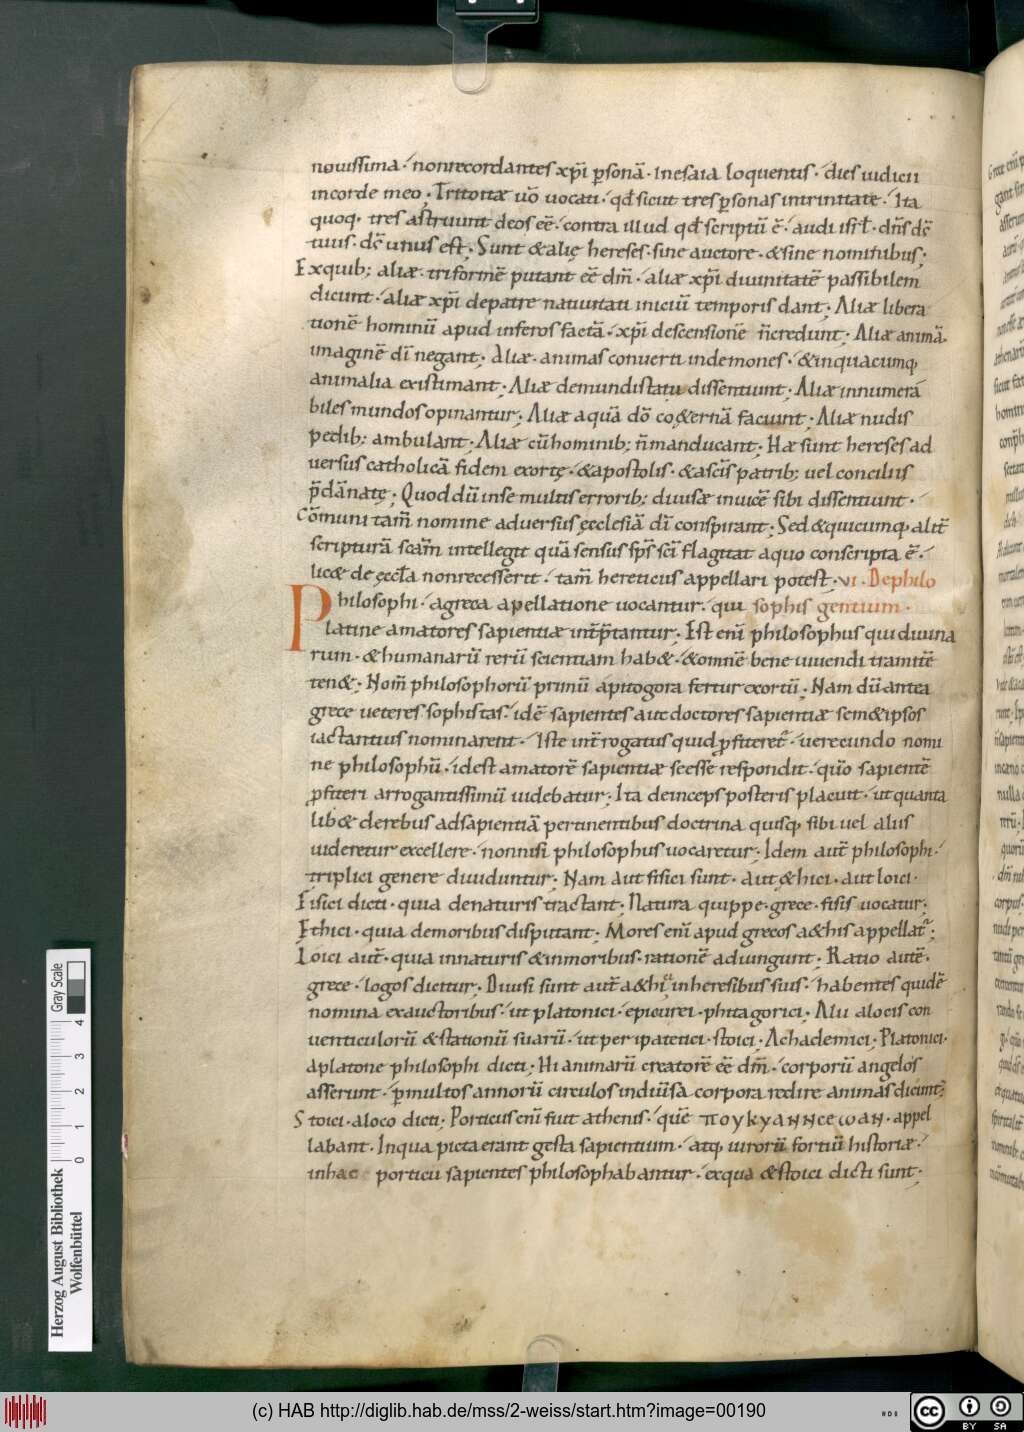 nouissima · nonrecordantes xp̄i ꝑsonā · Inesaia loquentis · dies iudicii
incorde meo ; Tritoitæ uō uocati · qđ sicut tres ꝑsonas intrinitate · Ita
quoq · tres astruunt deos eē · contra illud qđ scriptū ē · audi isrł · dn̄s dē
tuus · dē unus est ; Sunt &alię hereses · sine auctore · &sine nominibus ;
Exquib; aliæ · triformē putant eē dm̄ · aliæ xp̄i diuinitatē passibilem
dicunt · aliæ xp̄i depatre natiuitati iniciū temporis dant ; Aliæ libera
tionē hominū apud inferos factā · xp̄i descensionē n̄credunt ; Aliæ animā ·
imaginē dī negant ; Aliæ · animas conuerti indemones · &inquacumq
animalia existimant ; Aliæ demundistatu dissentiunt ; Aliæ innumera
biles mundos opinantur ; Aliæ aquā dō co&ernā faciunt ; Aliæ nudis
pedib; ambulant ; Aliæ cū hominib; n̄ manducant ; Hæ sunt hereses ad
uersus catholicā fidem exortę · &apostolis · &ascīs patrib; uel conciliis
p̄dānatę ; Quod dū inse multis errorib; diuisæ inuicē sibi dissentiunt ·
cōmuni tam̄ nomine aduersus ęcclesiā dī conspirant ; Sed &quicumq alit̄
scripturā scām intellegit quā sensus sp̄s scī flagitat aquo conscripta ē ·
lic& de ęccła nonrecesserit · tam̄ hereticus appellari potest · VI · Dephilo
Philosophi · agreca apellatione uocantur · qui sophis gentium ·
latine amatores sapientiæ int̄p̄tantur · Est enī philosophus qui diuina
rum · &humanarū rerū scientiam hab& · &omnē bene uiuendi tramitē
ten& ; Nom̄ philosophorū primū apitogora fertur exortū ; Nam dū antea
grece ueteres sophistas · idē sapientes aut doctores sapientiæ sem&ipsos
iactantius nominarent · Iste int̄rogatus quid ꝓfiteret̄ · uerecundo nomi
ne philosophū · idest amatorē sapientiæ seesse respondit · qūo sapientē
ꝓfiteri arrogantissimū uidebatur ; Ita deinceps posteris placuit · ut quanta
lib& derebus adsapientiā pertinentibus doctrina quisq sibi uel aliis
uideretur excellere · nonnisi philosophus uocaretur ; Idem aut̄ philosophi ·
triplici genere diuiduntur ; Nam aut fisici sunt · aut &hici · aut loici ·
Fisici dicti · quia denaturis tractant ; Natura quippe · grece · fisis uocatur ;
Ethici · quia demoribus disputant ; Mores enī apud grecos a&his appellat̄ ;
Loici aut̄ · quia innaturis &inmoribus · rationē adiungunt ; Ratio autē ·
grece · logos dicitur ; Diuisi sunt aut̄ a&hi inheresibus suis · habentes quidē
nomina exauctoribus · ut platonici · epicurei · phitagorici · Alii alocis con
uenticulorū &stationū suarū · ut peripatetici · stoici · Achademici ; Platonici ·
aplatone philosophi dicti ; Hi animarū creatorē eē dm̄ · corporū angelos
asserunt · ꝑ multos annorū circulos indiūsa corpora redire animas dicunt ;
Stoici · aloco dicti ; Porticus enī fuit athenis · quē ποΥΚΥΑΝΝϹΕωΑΝ · appel
labant · Inqua picta erant gesta sapientium · atq uirorū fortiū historiæ ·
inhac porticu sapientes philosophabantur · exqua &stoici dicti sunt ;
Herzog August Bibliothek
Wolfenbüttel
Gray Scale
0 1 2 3 4
(c) HAB http://diglib.hab.de/mss/2-weiss/start.htm?image=00190
cc BY SA